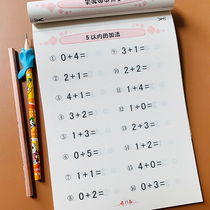 5以内的加法
① 0+4=
② 2+1=
③ 4+1=
④ 3+2=
⑤ 1+3=
⑥ 0+5=
⑦ 1+1=
⑧ 0+2=
3+1=
2+2=
1+2=
1+0=
2+3=
1+1=
4+0=
0+3=